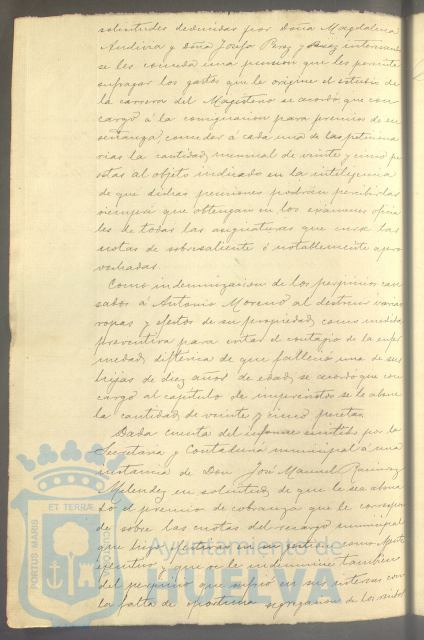 solicitudes deducidas por Doña Magdalena
Andivia y Doña Josefa Perez y interesando
se les conceda una pension que les permita
sufragar los gastos que le origine el estudio de
la carrera del Magisterio se acordó que con
cargo á la consignacion para premios de en
señanza, conceder á cada una de las peticiona
rias la cantidad mensual de veinte y cinco pe
setas al objeto indicado en la inteligencia
de que dichas pensiones podrán percibirlas
siempre que obtengan en los examenes oficia
les de todas las asignaturas que curse las
notas de sobresaliente ó notablemente apro
vechadas.
Como indemnizacion de los perjuicios cau
sados á Antonio Moreno al destruir varias
ropas y efectos de su propiedad, como medida
preventiva para evitar el contagio de la enfer
medad diftérica de que falleció una de sus
hijas de diez años de edad, se acordó que con
cargo al capitulo de imprevistos se le abone
la cantidad de veinte y cinco pesetas.
Dada cuenta del informe emitido por la
Secretaria y Contaduria municipal á una
instancia de Don José Manuel Ramirez
Melendez en solicitud de que le sea abona
do el premio de cobranza que le correspon
de sobre las cuotas del recargo municipal
que hizo efectivas en su gestion como Agente
ejecutivo y que se le indemnice tambien
del perjuicio que sufrió en sus intereses con
la falta de oportuna segregacion de los
PORTUS MARIS
ET TERRÆ
CUSTODIA
Ayuntamiento de
HUELVA